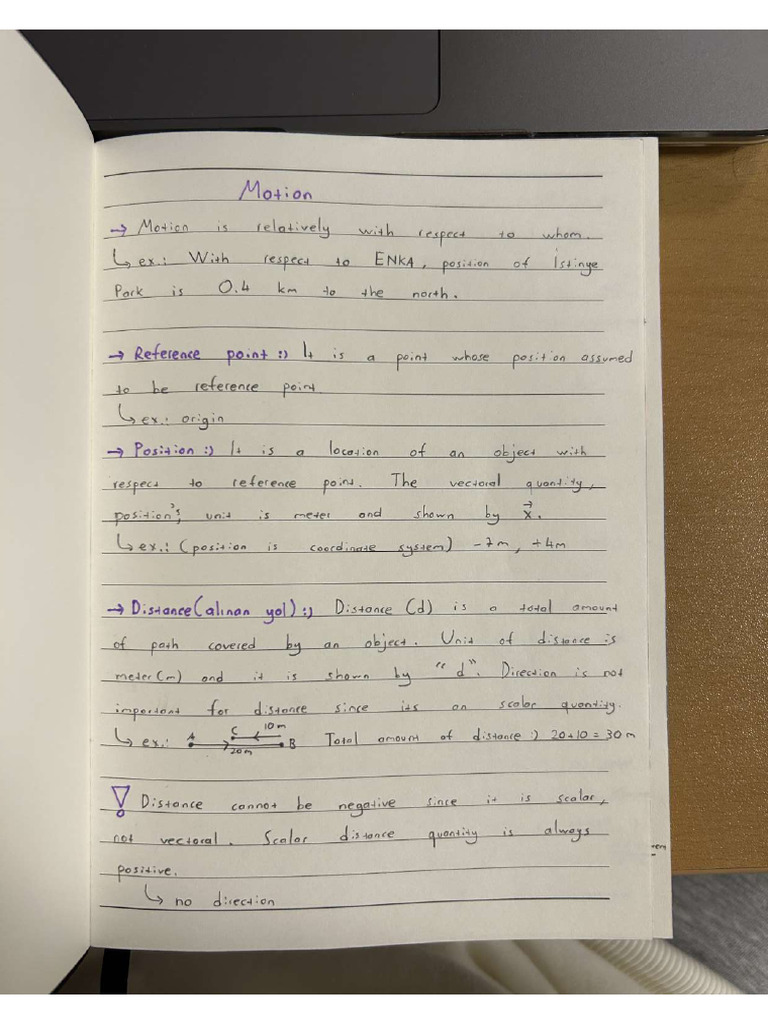 Motion
→ Motion is relatively with respect to whom.
↳ ex.: With respect to ENKA, position of İstinye
Park is 0.4 km to the north.
→ Reference point :) It is a point whose position assumed
to be reference point.
↳ ex.: origin
→ Position :) It is a location of an object with
respect to reference point. The vectoral quantity,
position's, unit is meter and shown by x⃗.
↳ ex.: (position is coordinate system) -7m, +4m
→ Distance (alınan yol) :) Distance (d) is a total amount
of path covered by an object. Unit of distance is
meter (m) and it is shown by "d". Direction is not
important for distance since its an scalar quantity.
↳ ex.: A C 10m B 20m Total amount of distance :) 20+10 = 30m
! Distance cannot be negative since it is scalar,
not vectoral. Scalar distance quantity is always
positive.
↳ no direction